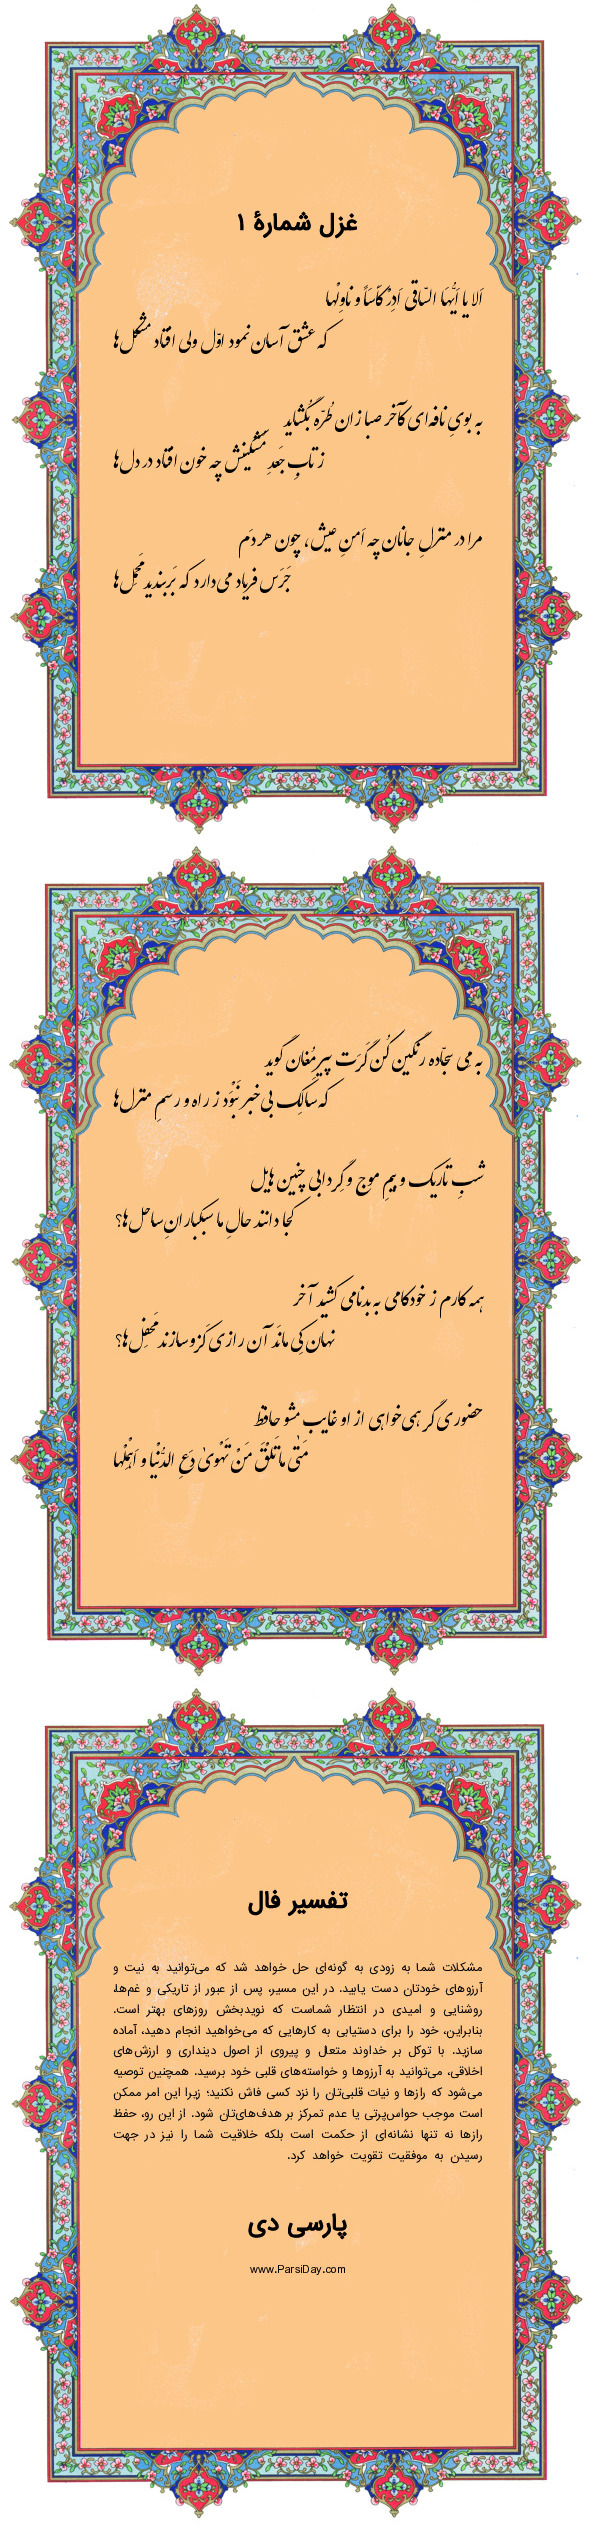 غزل شمارهٔ ۱
اَلا یا اَیُّهَا السّاقی اَدِرْ کَأسَاً و ناوِلْها
که عشق آسان نمود اوّل ولی افتاد مشکل‌ها
به بویِ نافه‌ای کآخر صبا زان طُرّه بُگشاید
ز تابِ جَعدِ مشکینش چه خون افتاد در دل‌ها
مرا در منزلِ جانان چه اَمنِ عیش، چون هر دَم
جَرَس فریاد می‌دارد که بَربندید مَحْمِل‌ها
به مِی سجّاده رنگین کُن گَرَت پیرِ مُغان گوید
که سالِک بی‌خبر نَبْوَد ز راه و رسمِ منزل‌ها
شبِ تاریک و بیمِ موج و گِردابی چنین هایل
کجا دانند حالِ ما سبکبارانِ ساحل‌ها؟
همه کارم ز خودکامی به بدنامی کشید آخر
نهان کِی مانَد آن رازی کَزو سازند مَحفِل‌ها؟
حضوری گر همی‌خواهی از او غایب مشو حافظ
مَتٰی ما تَلْقَ مَنْ تَهْویٰ دَعِ الدُّنْیا و اَهْمِلْها
تفسیر فال
مشکلات شما به زودی به گونه‌ای حل خواهد شد که می‌توانید به نیت و
آرزوهای خودتان دست یابید. در این مسیر، پس از عبور از تاریکی و غم‌ها،
روشنایی و امیدی در انتظار شماست که نویدبخش روزهای بهتر است.
بنابراین، خود را برای دستیابی به کارهایی که می‌خواهید انجام دهید، آماده
سازید. با توکل بر خداوند متعال و پیروی از اصول دینداری و ارزش‌های
اخلاقی، می‌توانید به آرزوها و خواسته‌های قلبی خود برسید. همچنین توصیه
می‌شود که رازها و نیات قلبی‌تان را نزد کسی فاش نکنید؛ زیرا این امر ممکن
است موجب حواس‌پرتی یا عدم تمرکز بر هدف‌های‌تان شود. از این رو، حفظ
رازها نه تنها نشانه‌ای از حکمت است بلکه خلاقیت شما را نیز در جهت
رسیدن به موفقیت تقویت خواهد کرد.
پارسی دی
www.ParsiDay.com